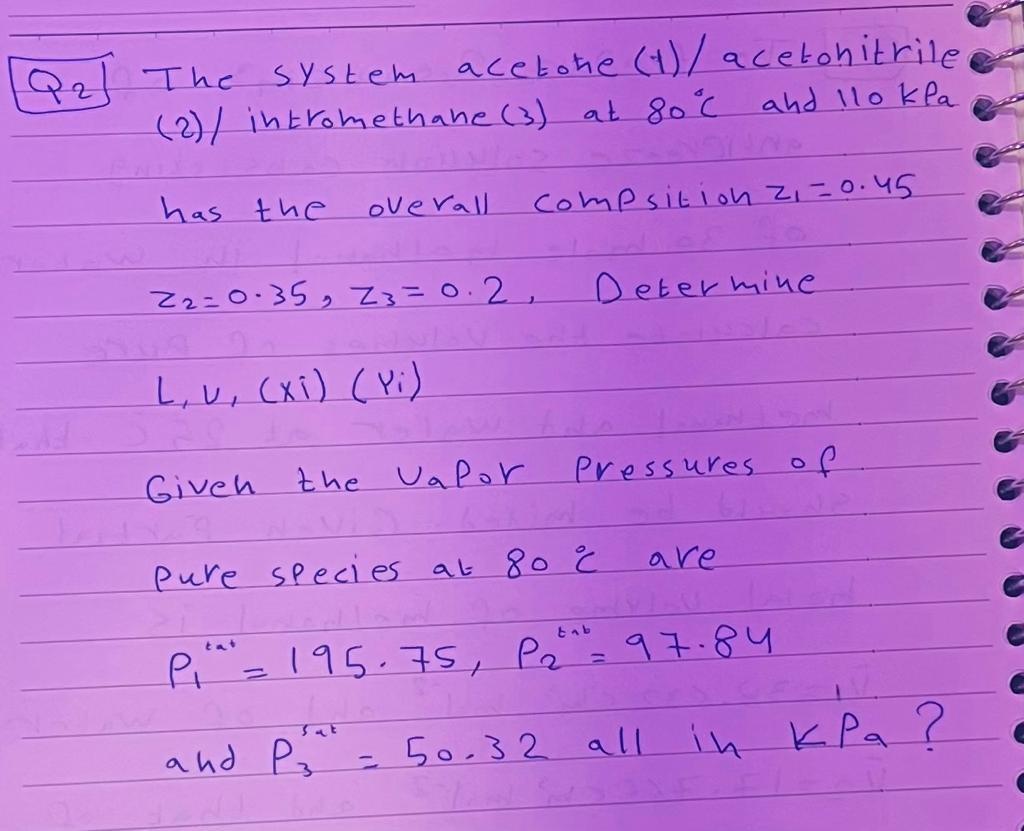 Q2 The system acetone (1)/ acetohitrile
(2)/ intromethane (3) at 80°C and 110 kPa
has the overall compsition z1 = 0.45
z2 = 0.35, z3 = 0.2, Determine
L, V, (xi) (yi)
Given the Vapor Pressures of
pure species at 80°C are
P1^tat = 195.75, P2^tab = 97.84
and P3^sat = 50.32 all in kPa ?